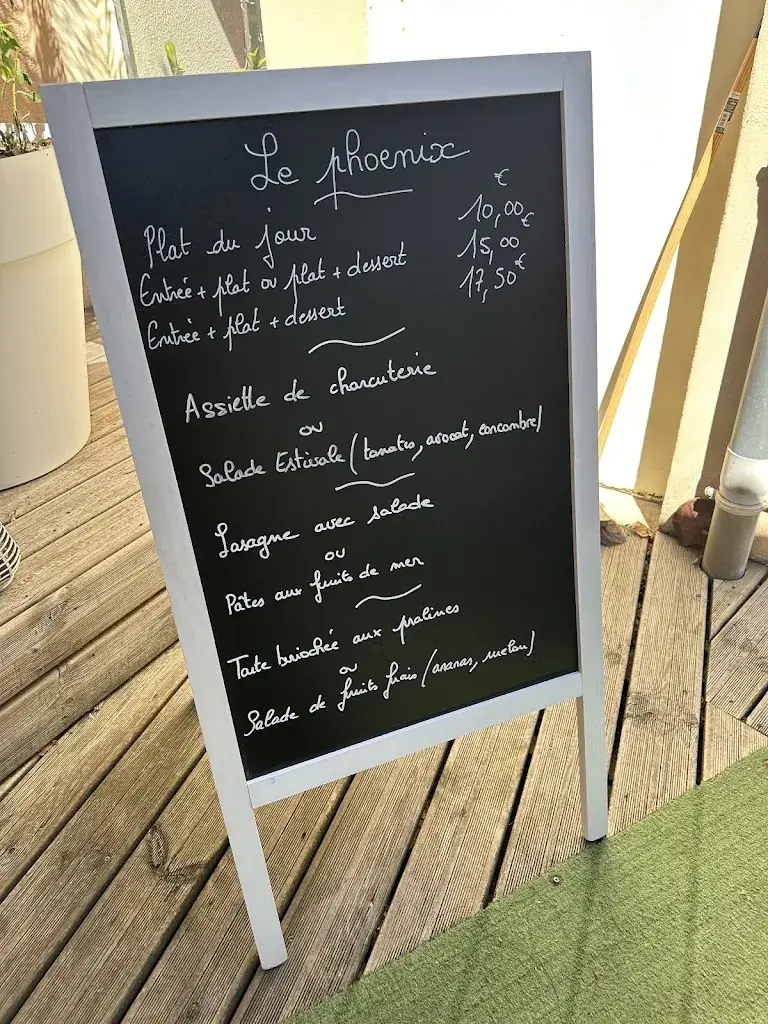 Le phoenix
€
Plat du jour 10,00
Entrée + plat ou plat + dessert 15,00€
Entrée + plat + dessert 17,50€
Assiette de charcuterie
ou
Salade Estivale (tomates, avocat, concombre)
Lasagne avec salade
ou
Pâtes aux fruits de mer
Tarte briochée aux pralines
ou
Salade de fruits frais (ananas, melon)